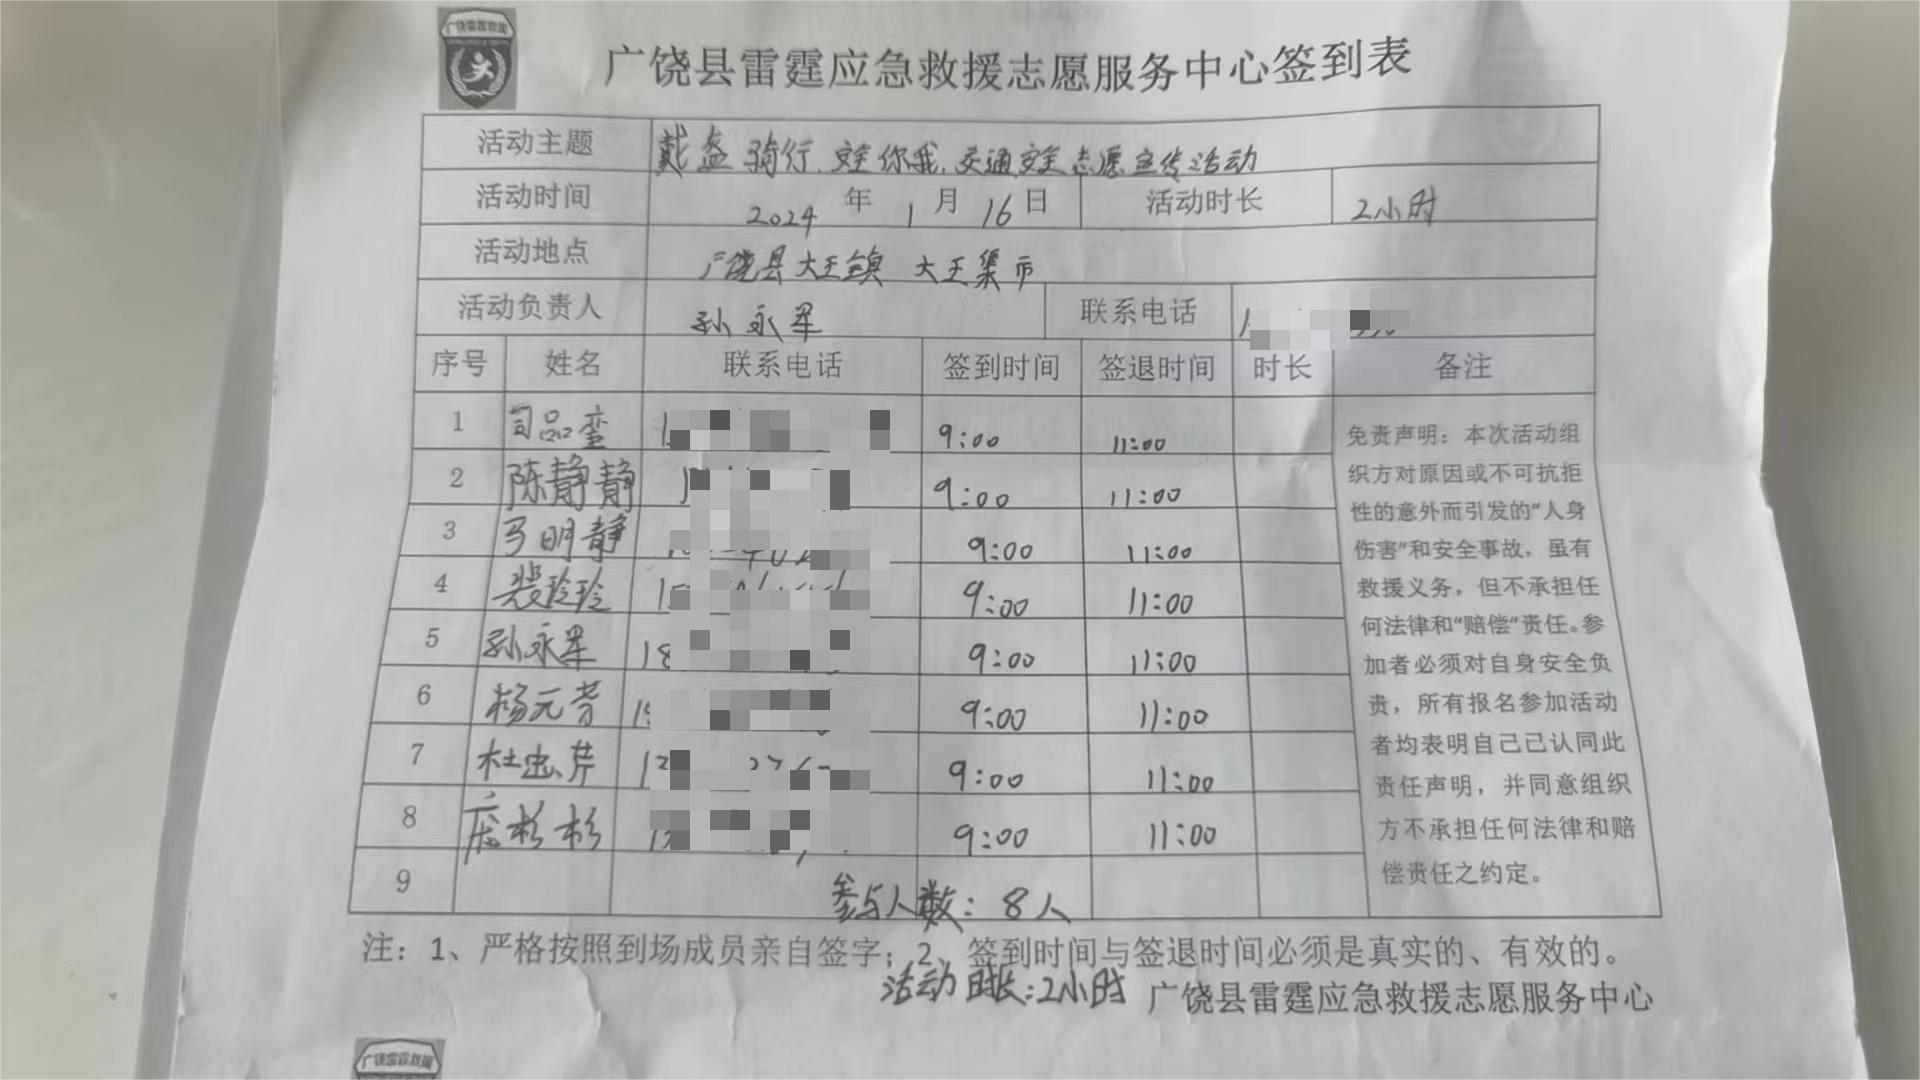 广饶雷霆救援
广饶县雷霆应急救援志愿服务中心签到表
活动主题 戴盔骑行.安全你我.交通安全志愿宣传活动
活动时间 2024年1月16日 活动时长 2小时
活动地点 广饶县大王镇 大王集市
活动负责人 孙永军 联系电话
序号 姓名 联系电话 签到时间 签退时间 时长 备注
1 司品銮 9:00 11:00
2 陈静静 9:00 11:00
3 马明静 9:00 11:00
4 裴玲玲 9:00 11:00
5 孙永军 18 9:00 11:00
6 杨元芳 9:00 11:00
7 杜忠芹 9:00 11:00
8 庞杉杉 9:00 11:00
9
参与人数：8人
免责声明：本次活动组
织方对原因或不可抗拒
性的意外而引发的“人身
伤害”和安全事故，虽有
救援义务，但不承担任
何法律和“赔偿”责任。参
加者必须对自身安全负
责，所有报名参加活动
者均表明自己已认同此
责任声明，并同意组织
方不承担任何法律和赔
偿责任之约定。
注：1、严格按照到场成员亲自签字；2、签到时间与签退时间必须是真实的、有效的。
活动时长：2小时 广饶县雷霆应急救援志愿服务中心
广饶雷霆救援